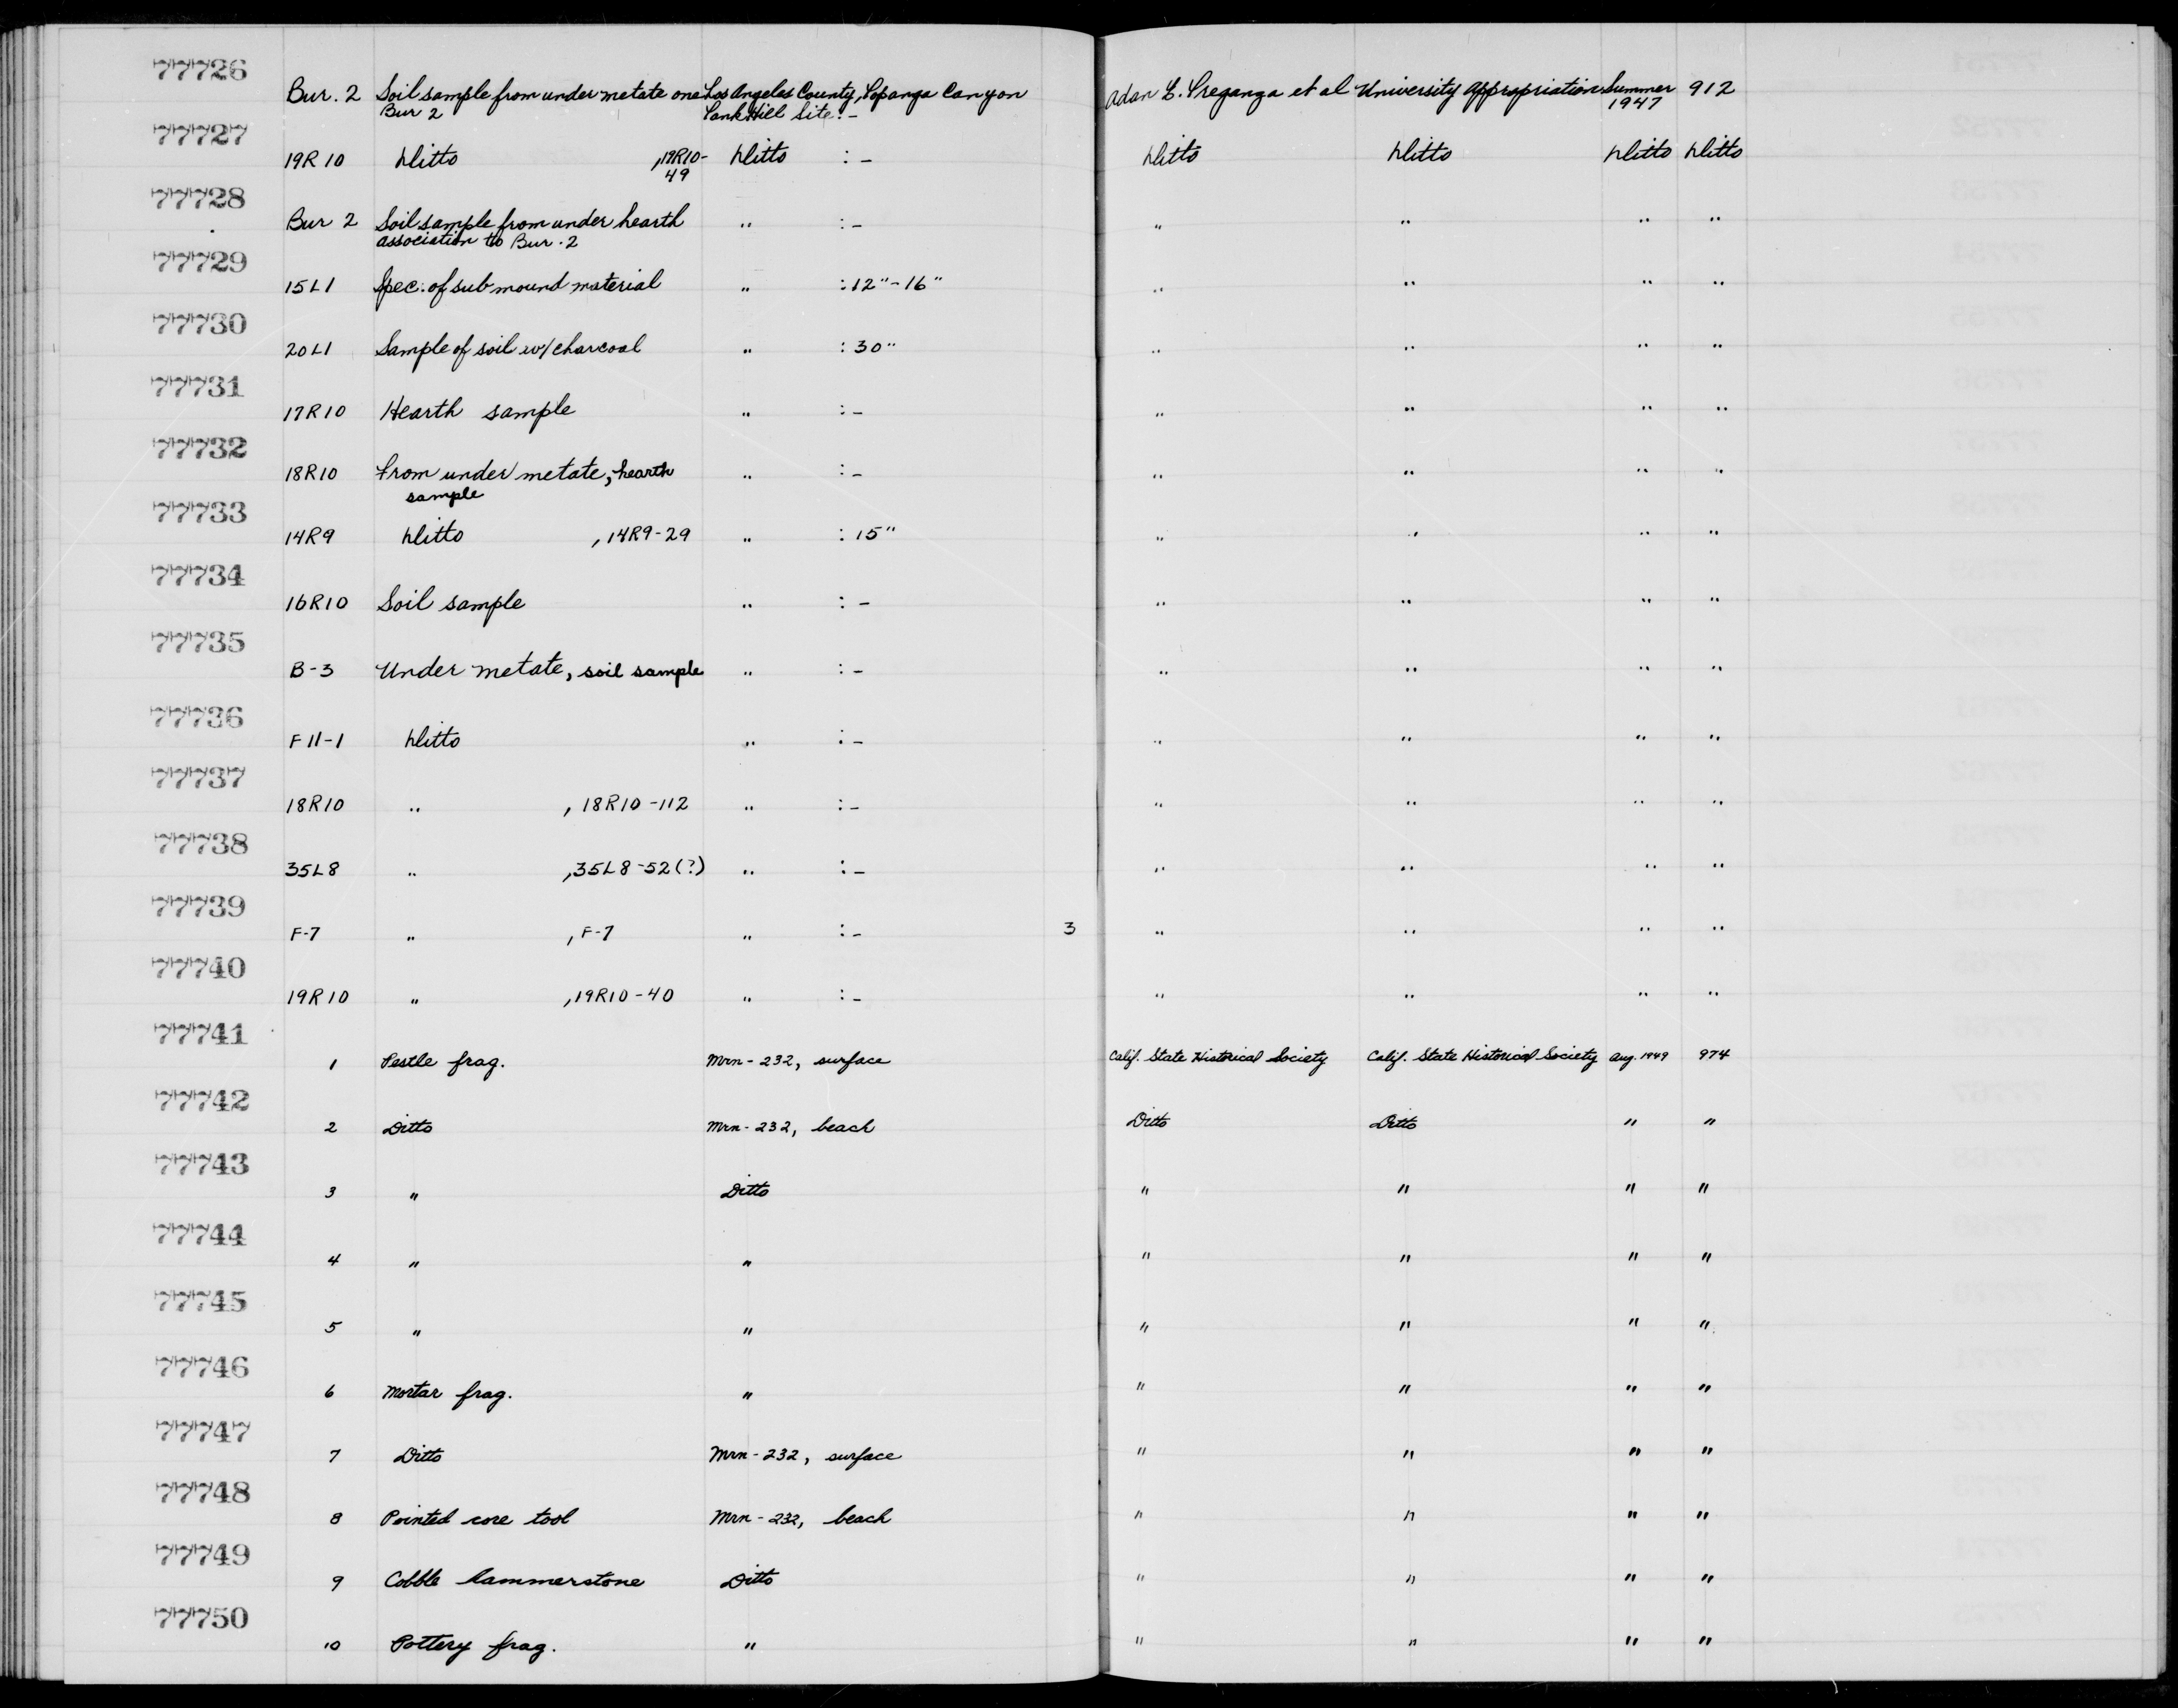 77726
Bur. 2 Soil sample from under metate one Los Angeles County, Topanga Canyon Adan E. Treganza et al University Appropriation Summer 912
Bur 2 Tank Hill Site : - 1947
77727
19R10 Ditto , 19R10- Ditto : - Ditto Ditto Ditto Ditto
49
77728
Bur 2 Soil sample from under hearth " : - " " " "
association to Bur. 2
77729
15L1 Spec. of submound material " : 12"-16" " " " "
77730
20L1 Sample of soil w/charcoal " : 30" " " " "
77731
17R10 Hearth sample " : - " " " "
77732
18R10 From under metate, hearth " : - " " " "
sample
77733
14R9 Ditto , 14R9-29 " : 15" " " " "
77734
16R10 Soil sample " : - " " " "
77735
B-3 Under metate, soil sample " : - " " " "
77736
F11-1 Ditto " : - " " " "
77737
18R10 " , 18R10-112 " : - " " " "
77738
35L8 " , 35L8-52(?) " : - " " " "
77739
F-7 " , F-7 " : - 3 " " " "
77740
19R10 " , 19R10-40 " : - " " " "
77741
1 Pestle frag. Mrn-232, surface Calif. State Historical Society Calif. State Historical Society Aug. 1949 974
77742
2 Ditto Mrn-232, beach Ditto Ditto " "
77743
3 " Ditto " " " "
77744
4 " " " " " "
77745
5 " " " " " "
77746
6 Mortar frag. " " " " "
77747
7 Ditto Mrn-232, surface " " " "
77748
8 Pointed core tool Mrn-232, beach " " " "
77749
9 Cobble hammerstone Ditto " " " "
77750
10 Pottery frag. " " " " "